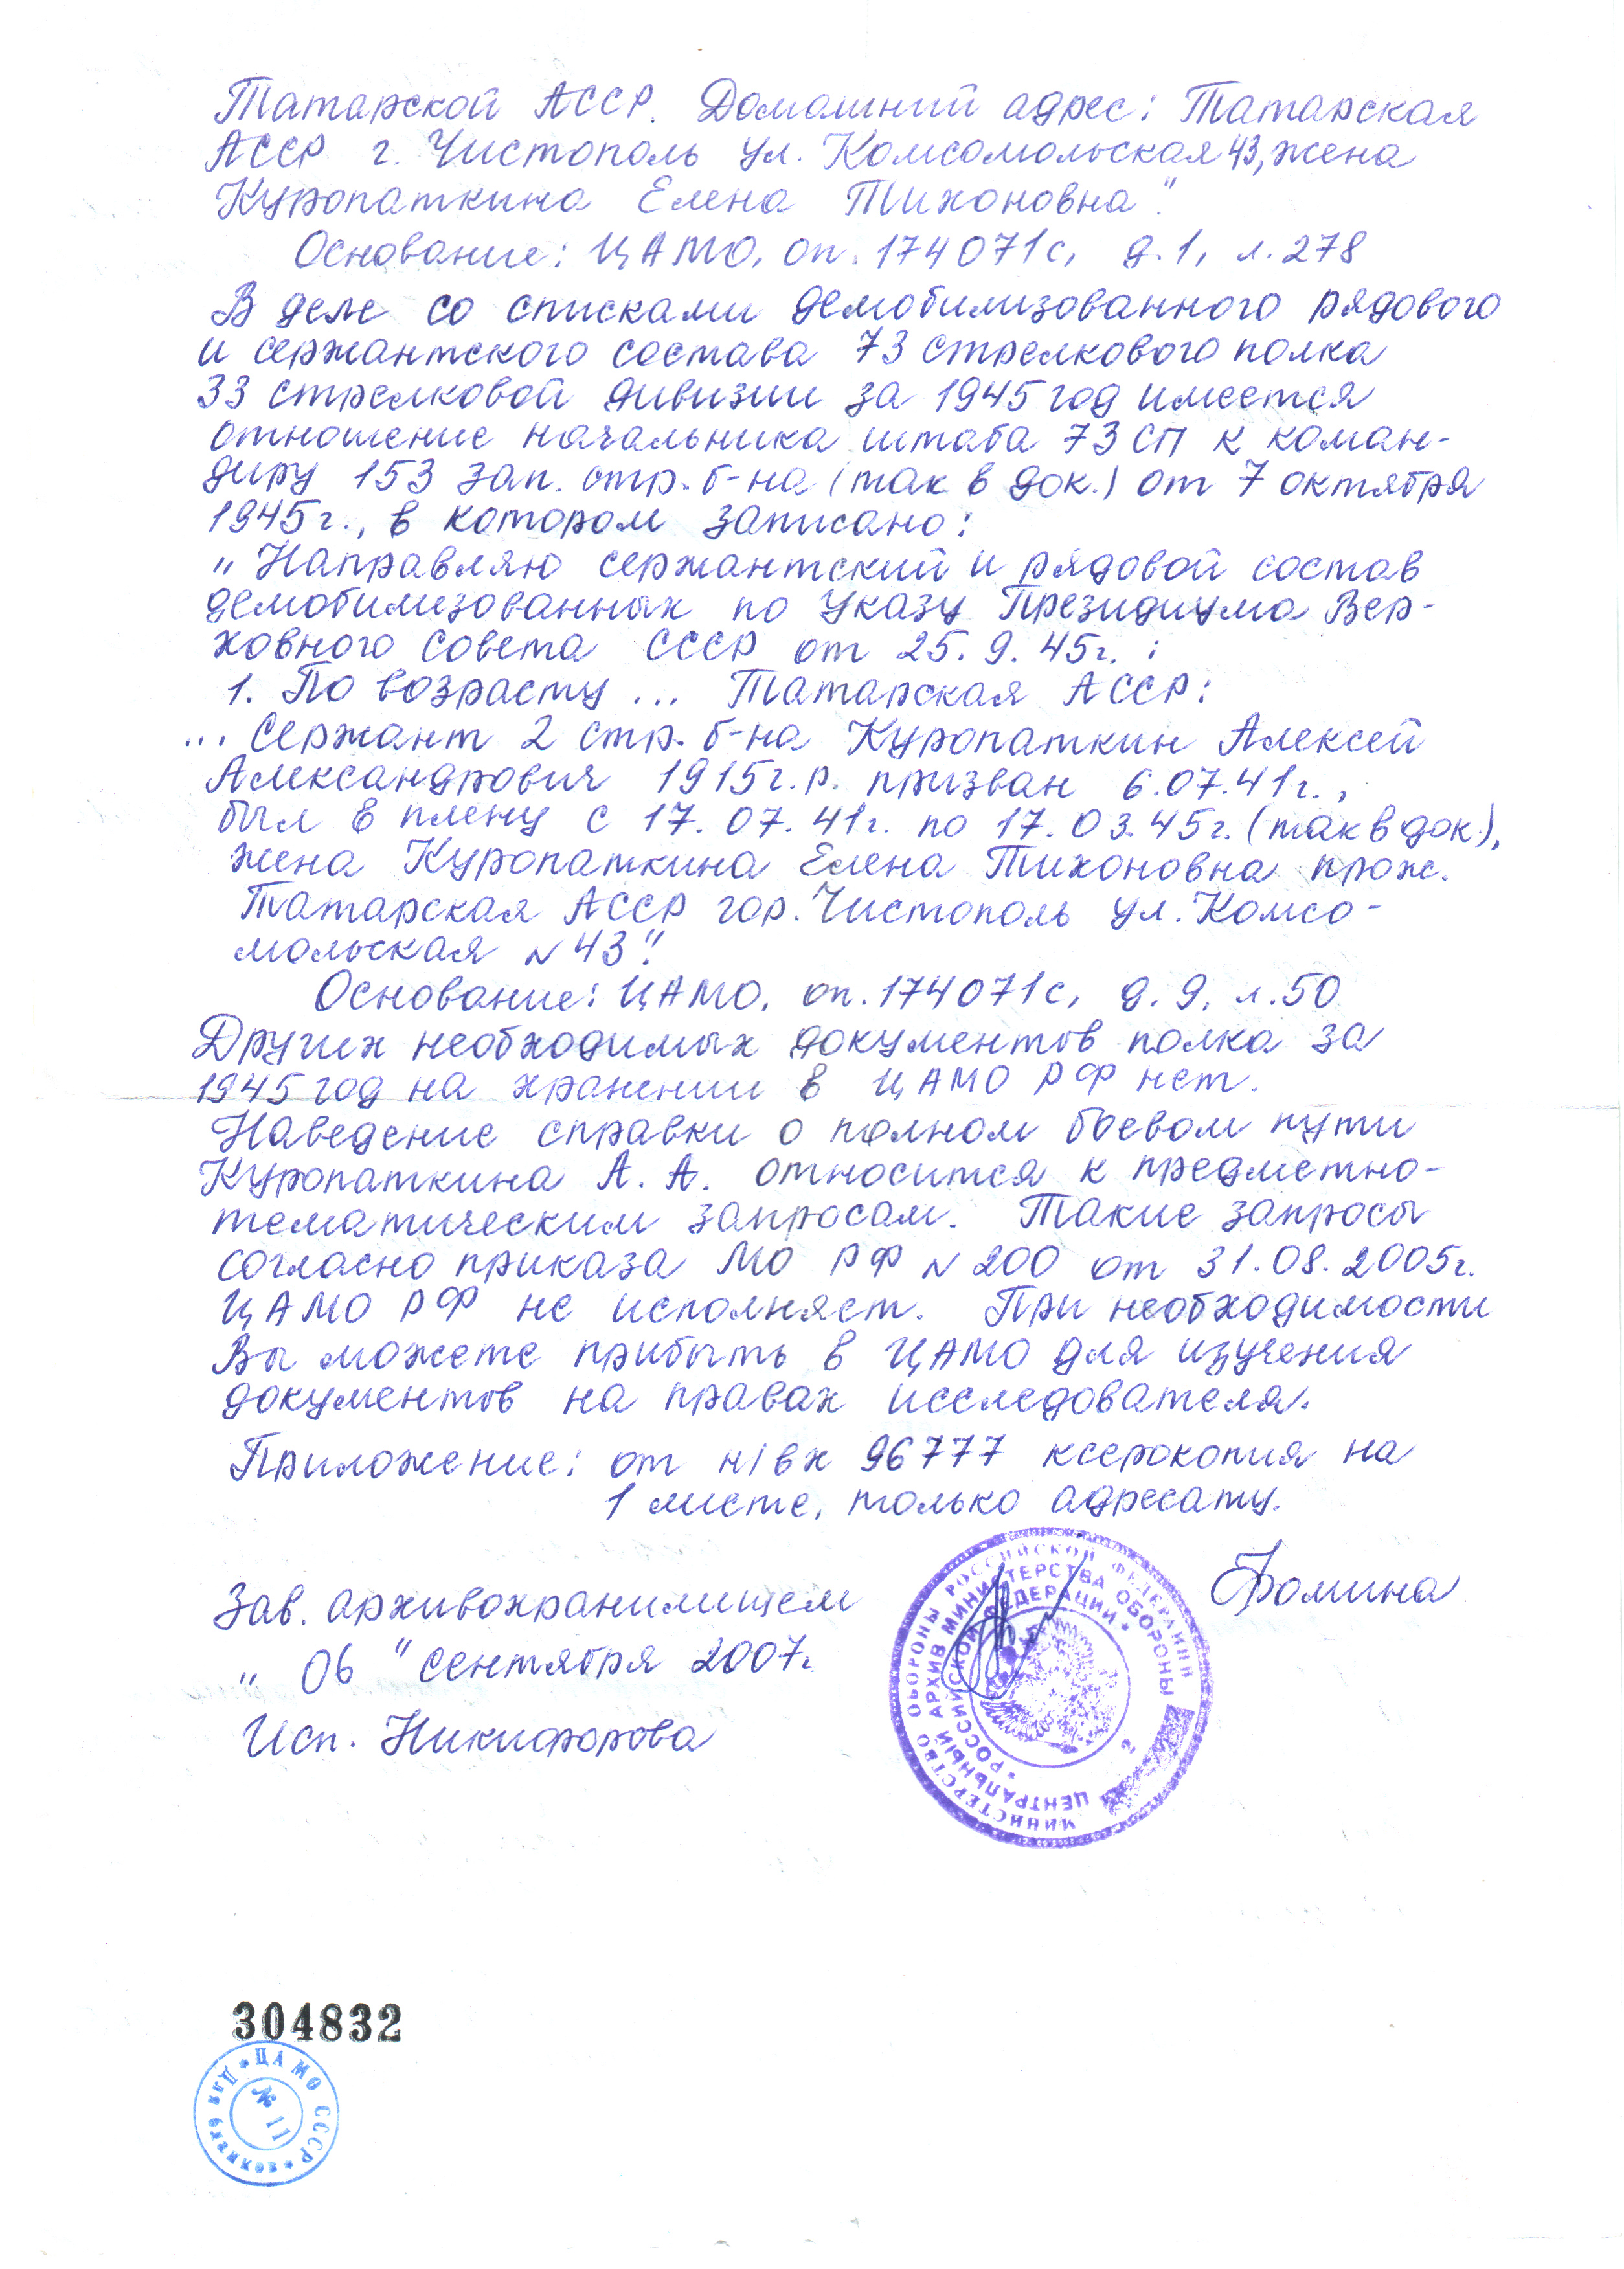 Татарской АССР. Домашний адрес: Татарская
АССР г. Чистополь ул. Комсомольская 43, жена
Куропаткина Елена Тихоновна".
Основание: ЦАМО, оп. 174071с, д.1, л.278
В деле со списками демобилизованного рядового
и сержантского состава 73 стрелкового полка
33 стрелковой дивизии за 1945 год имеется
отношение начальника штаба 73 СП к коман-
диру 153 зап. стр. б-на (так в док.) от 7 октября
1945г., в котором записано:
„Направляю сержантский и рядовой состав
демобилизованных по Указу Президиума Вер-
ховного совета СССР от 25.9.45г.:
1. По возрасту ... Татарская АССР:
... Сержант 2 стр. б-на Куропаткин Алексей
Александрович 1915г.р. призван 6.07.41г.,
был в плену с 17.07.41г. по 17.03.45г. (так в док.),
жена Куропаткина Елена Тихоновна прож.
Татарская АССР гор. Чистополь ул. Комсо-
мольская N 43".
Основание: ЦАМО, оп. 174071с, д. 9, л.50
Других необходимых документов полка за
1945 год на хранении в ЦАМО РФ нет.
Наведение справки о полном боевом пути
Куропаткина А.А. относится к предметно-
тематическим запросам. Такие запросы
согласно приказа МО РФ N 200 от 31.08.2005г.
ЦАМО РФ не исполняет. При необходимости
Вы можете прибыть в ЦАМО для изучения
документов на правах исследователя.
Приложение: от н/вх 96777 ксерокопия на
1 листе, только адресату.
Зав. архивохранилищем Фомина
„ 06 " сентября 2007г.
Исп. Никифорова
МИНИСТЕРСТВО ОБОРОНЫ РОССИЙСКОЙ ФЕДЕРАЦИИ
ЦЕНТРАЛЬНЫЙ АРХИВ МИНИСТЕРСТВА ОБОРОНЫ
*РОССИЙСКОЙ ФЕДЕРАЦИИ*
304832
*ЦАМО СССР*
№ 11